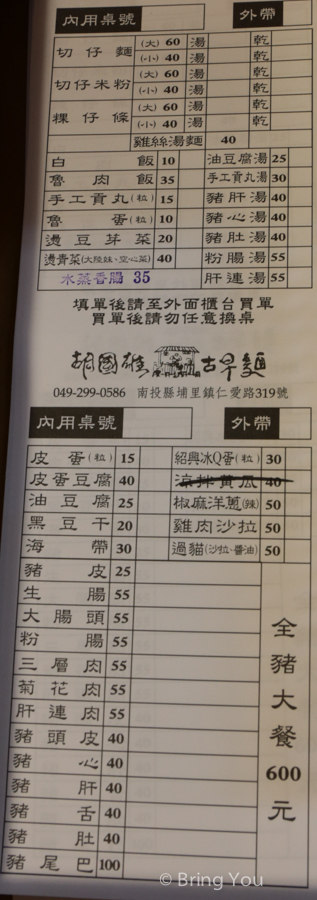 內用桌號 外帶
切仔麵 (大) 60 湯 乾
(小) 40 湯 乾
切仔米粉 (大) 60 湯 乾
(小) 40 湯 乾
粿仔條 (大) 60 湯 乾
(小) 40 湯 乾
雞絲湯麵 40
白飯 10 油豆腐湯 25
魯肉飯 35 手工貢丸湯 30
手工貢丸(粒) 15 豬肝湯 40
魯蛋(粒) 10 豬心湯 40
燙豆芽菜 20 豬肚湯 40
燙青菜(大陸妹、空心菜) 40 粉腸湯 55
水蒸香腸 35 肝連湯 55
填單後請至外面櫃台買單
買單後請勿任意換桌
胡國雄古早麵
049-299-0586 南投縣埔里鎮仁愛路319號
內用桌號 外帶
皮蛋(粒) 15 紹興冰Q蛋(粒) 30
皮蛋豆腐 40 涼拌黃瓜 40
油豆腐 25 椒麻洋蔥(辣) 50
黑豆干 20 雞肉沙拉 50
海帶 30 過貓(沙拉、醬油) 50
豬皮 25
生腸 55
大腸頭 55
粉腸 55
三層肉 55
菊花肉 55
肝連肉 55
豬頭皮 40
豬心 40
豬肝 40
豬舌 40
豬肚 40
豬尾巴 100
全豬大餐600元
© Bring You